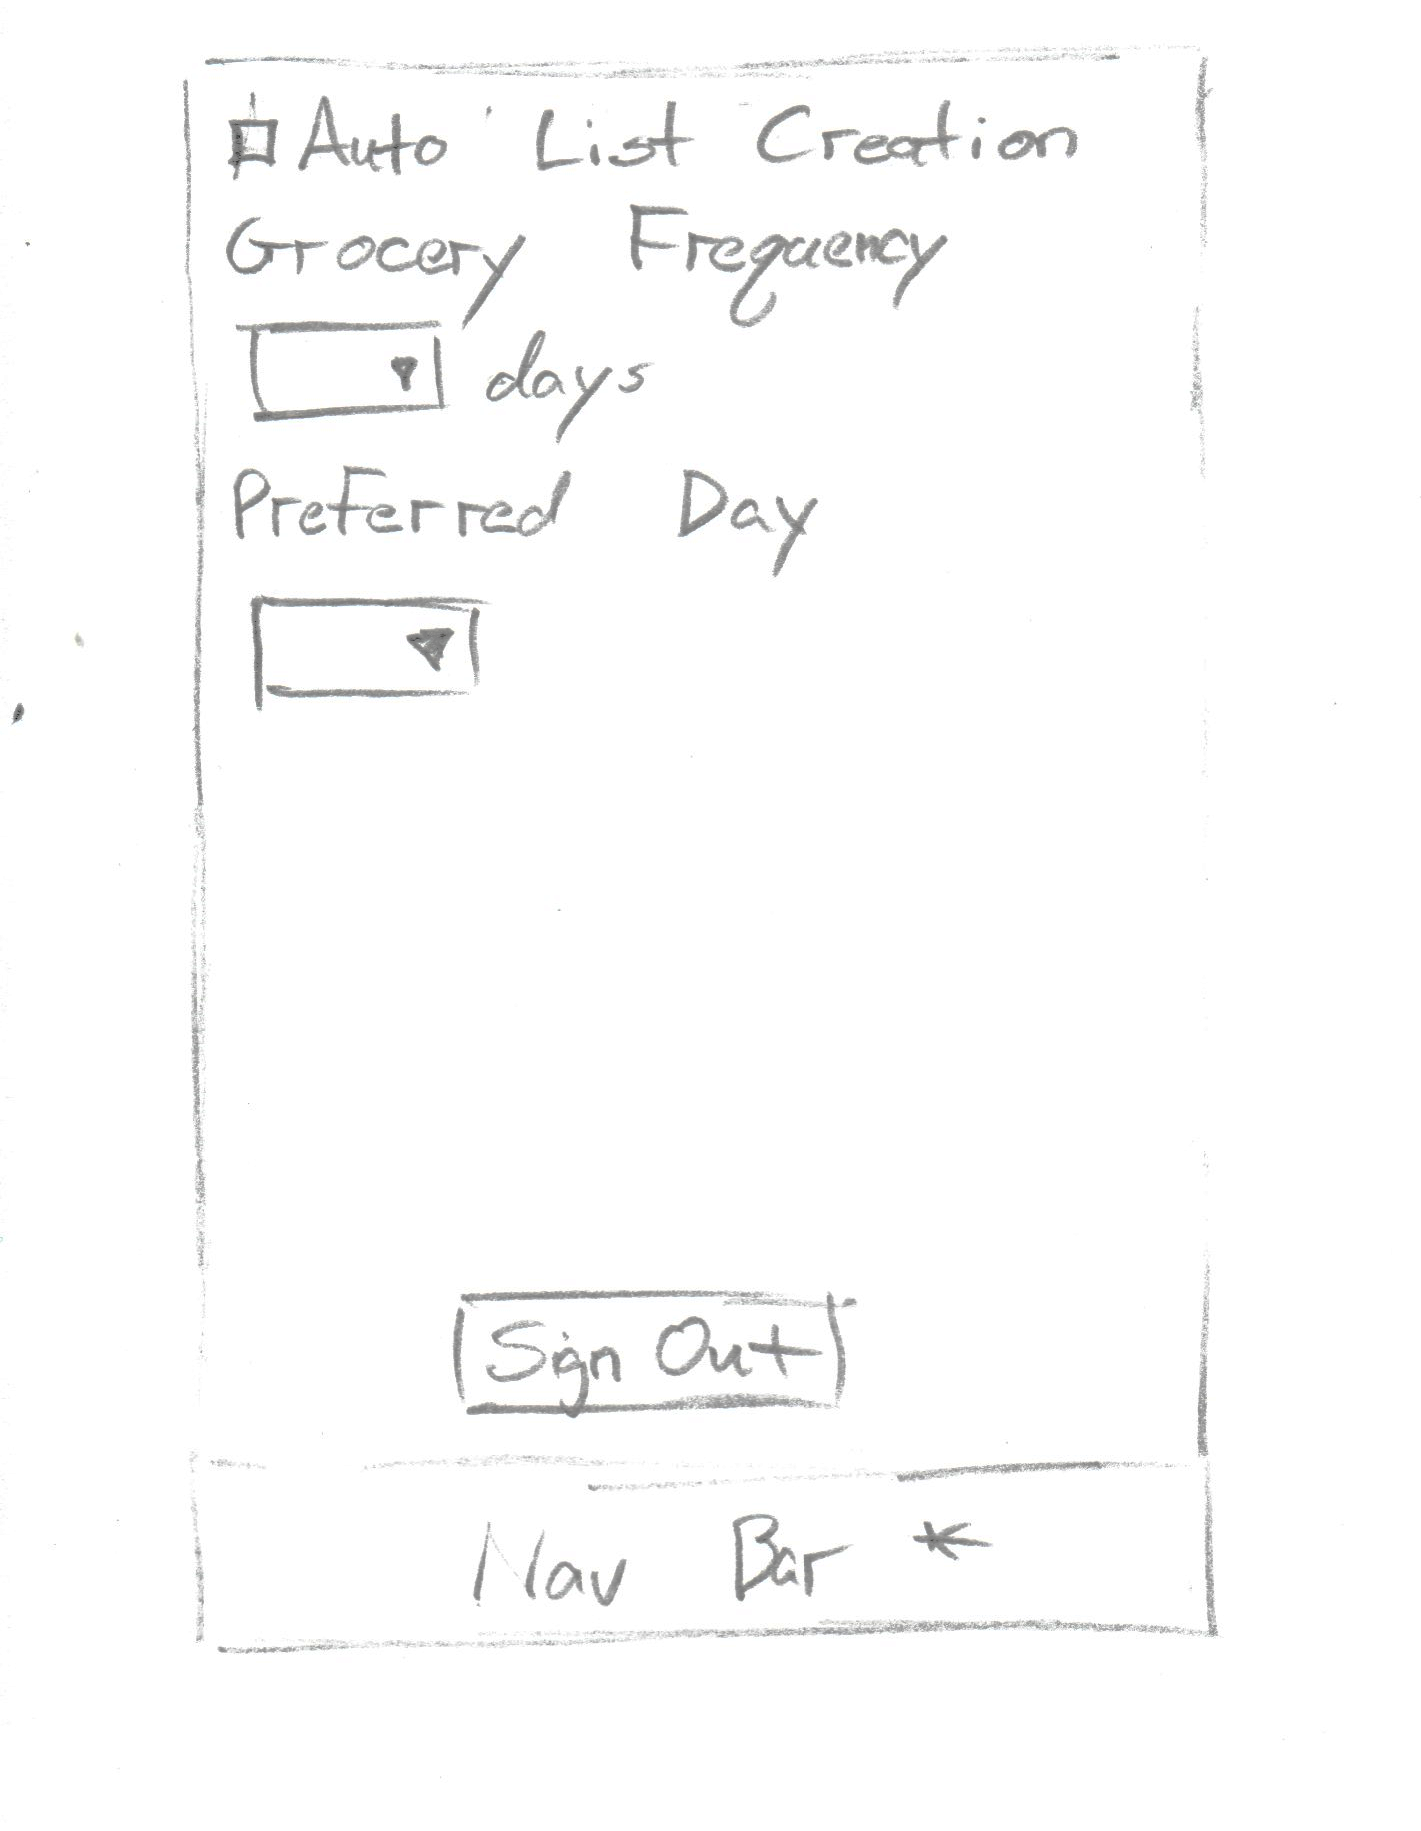 Auto List Creation
Grocery Frequency
days
Preferred Day
Sign Out
Nav Bar *